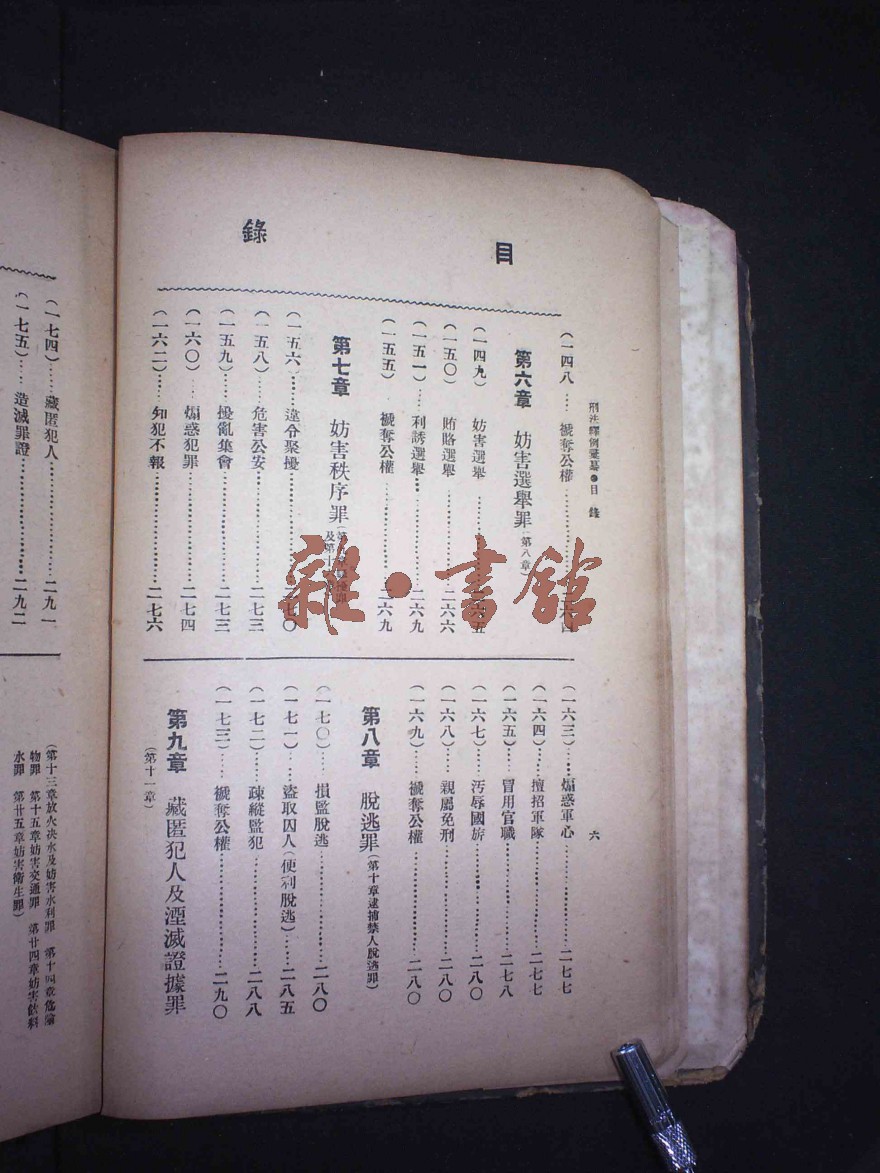 目錄
刑法釋例彙纂●目錄
六
(一四八)……褫奪公權……二六四
第六章 妨害選舉罪(第八章)
(一四九) 妨害選舉……二六五
(一五〇) 賄賂選舉……二六六
(一五一)……利誘選舉……二六九
(一五五) 褫奪公權……二六九
第七章 妨害秩序罪
及第十
(一五六)……違令聚擾……二七〇
(一五八)……危害公安……二七三
(一五九)……擾亂集會……二七三
(一六〇)……煽惑犯罪……二七四
(一六二)……知犯不報……二七六
(一六三)……煽惑軍心……二七七
(一六四)……擅招軍隊……二七七
(一六五)……冒用官職……二七八
(一六七)……污辱國旂……二八〇
(一六八)……親屬免刑……二八〇
(一六九)……褫奪公權……二八〇
第八章 脫逃罪(第十章逮捕禁人脫逃罪)
(一七〇)……損監脫逃……二八〇
(一七一)……盜取囚人(便利脫逃)……二八五
(一七二)……疎縱監犯……二八八
(一七三)……褫奪公權……二九〇
第九章 藏匿犯人及湮滅證據罪
(第十一章)
(一七四)……藏匿犯人……二九一
(一七五)……造滅罪證……二九二
(第十三章放火决水及妨害水利罪 第十四章危險
物罪 第十五章妨害交通罪 第廿四章妨害飲料
水罪 第廿五章妨害衛生罪)
雜·書館